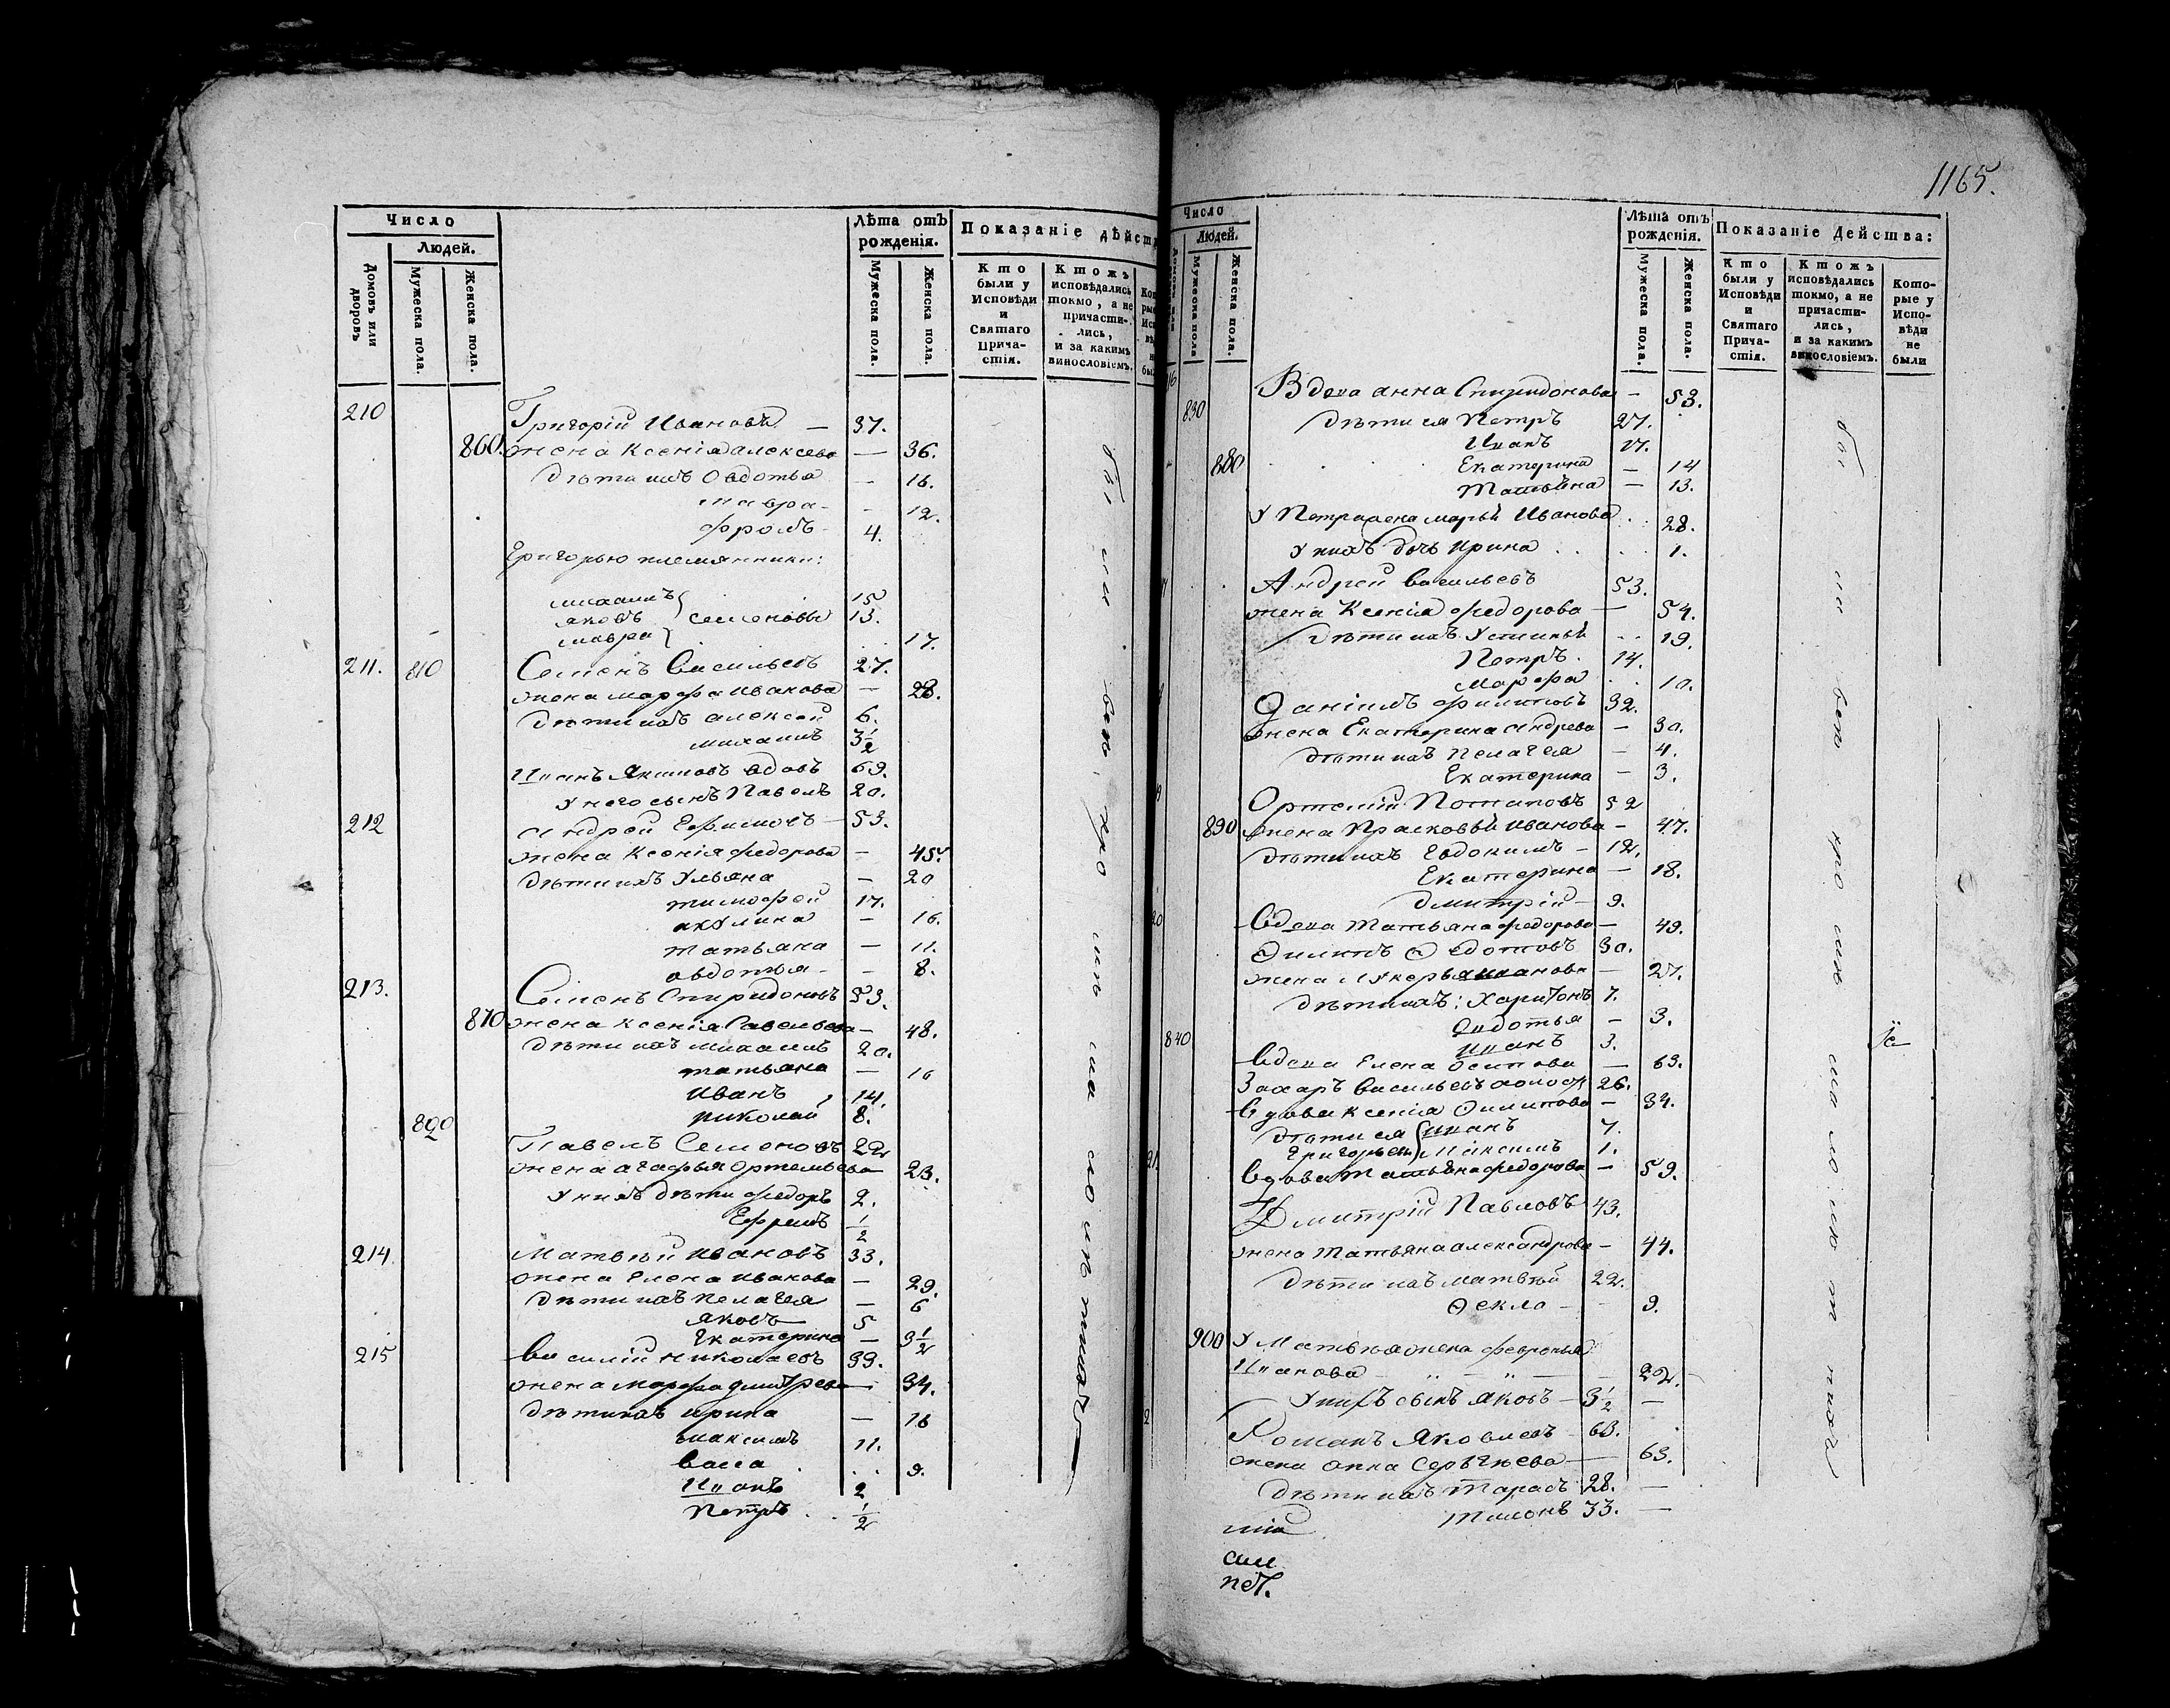 Число
Людей.
Домовъ или дворовъ
Мужеска пола.
Женска пола.
Лѣта отъ рожденія.
Мужеска пола.
Женска пола.
Показаніе дѣйст
Кто были у Исповѣди и Святаго Прича-стія.
Ктожъ исповѣдались токмо, а не причасти-лись, и за какимъ винословіемъ.
210 Григорій Ивановъ — 37.
860. жена Ксенія алексева — 36.
дѣти ихъ Овдотья - 16.
Мавра - - 12.
Фролъ - 4.
Григорью племянники:
михаилъ 15
яковъ семеновы 13.
мавра 17.
211. 810 Семенъ Васильевъ 27.
жена марфа иванова — 28.
дѣти ихъ алексей 6.
михаилъ 3 1/2
Иванъ Якимовъ вдовъ 69.
У него сынъ Павелъ 20.
212 андрей Ефимовъ — 53.
жена Ксенія федорова — 45.
дѣти ихъ Ульяна — 20
тимофей 17.
акулина — 16.
татьяна — 11.
овдотья - — 8.
213. Семенъ Спиридоновъ 53.
870 жена ксенія Савельева — 48.
дѣти ихъ михаилъ 20.
татьяна — 16
иванъ 14.
николай 8.
820 Павелъ Семеновъ 22
жена агафья Ортемьева — 23.
У нихъ дѣти федоръ 2.
Ефремъ 1/2
214. Матвѣй ивановъ 33.
жена Елена иванова — 29.
дѣти ихъ пелагея — 6
яковъ 5
Екатерина — 3 1/2
215 василій николаевъ 39.
жена марфа дмитрева — 34.
дѣти ихъ ирина — 16
максимъ 11.
васса . . . 9.
Иванъ 2
Петръ . . 1/2
1165.
Число
Людей.
Мужеска пола
Женска пола.
Лѣта отъ рожденія.
Мужеска пола.
Женска пола.
Показаніе Действа:
Кто были у Исповѣди и Святаго Прича-стія.
Ктожъ исповѣдались токмо, а не причасти-лись, и за какимъ винословіемъ.
Кото-рые у Испо-вѣди не были
Вдова анна Спиридонова — 53.
830 дѣти ея Петръ 27.
Иванъ 17.
880 Екатерина — 14
Татьяна — 13.
У Петра жена марья Иванова . . 28.
У нихъ дочь Ирина . . . . 1.
Андрей васильевъ 53.
жена Ксенія федорова — 54.
дѣти ихъ Устинья - - 19.
Петръ. 14.
Марфа . . 10.
Данилъ филиповъ 32.
жена Екатерина андрева — 30.
дѣти ихъ пелагея — 4.
Екатерина — 3.
Ортемій Потаповъ 52
890 жена Прасковья иванова — 47.
дѣти ихъ Евдокимъ — 12.
Екатерина — 18.
дмитрій — 9.
вдова татьяна федорова — 49.
Филипъ Федотовъ 30.
жена лукерья иванова — 27.
дѣти ихъ: Харитонъ 7.
Овдотья — 3.
840 иванъ 3.
вдова Елена Осипова — 63.
Захаръ васильевъ холост 26.
вдова Ксенія Филипова — 34.
дѣти ея иванъ 7.
Григорьевы Максимъ 1.
вдова татьяна федорова — 59.
Дмитрій Павловъ 43.
жена татьяна александрова — 44.
дѣти ихъ матвѣй 22.
Фекла — - 9.
900 У Матвѣя жена февронья
Иванова - „ - „ - — 22.
У нихъ сынъ яковъ — 3 1/2 —
Романъ Яковлевъ 63.
жена анна Сергѣева — 63.
дѣти ихъ тарасъ 28. —
33. —